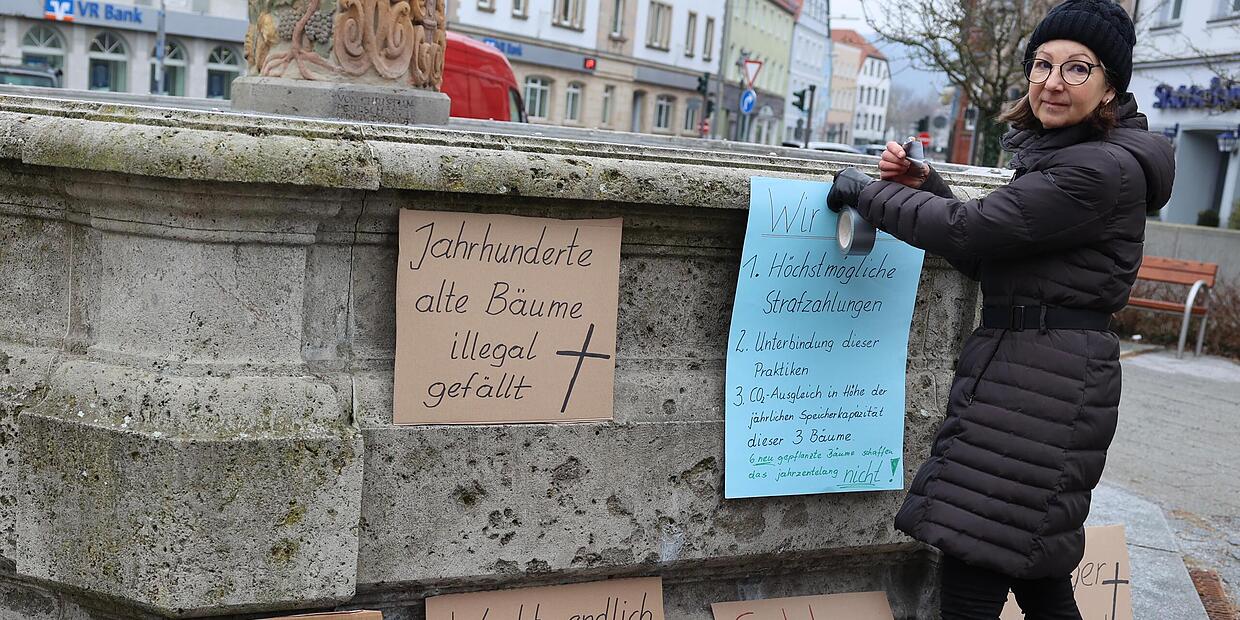 VR Bank
VR Bank
Jahrhunderte
alte Bäume
illegal
gefällt
Wir
1. Höchstmogliche
Strafzahlungen
2. Unterbindung dieser
Praktiken
3. CO₂-Ausgleich in Höhe der
jährlichen Speicherkapazität
dieser 3 Bäume.
6 neu gepflanzte Bäume schaffen
das jahrzentelang nicht!
endlich